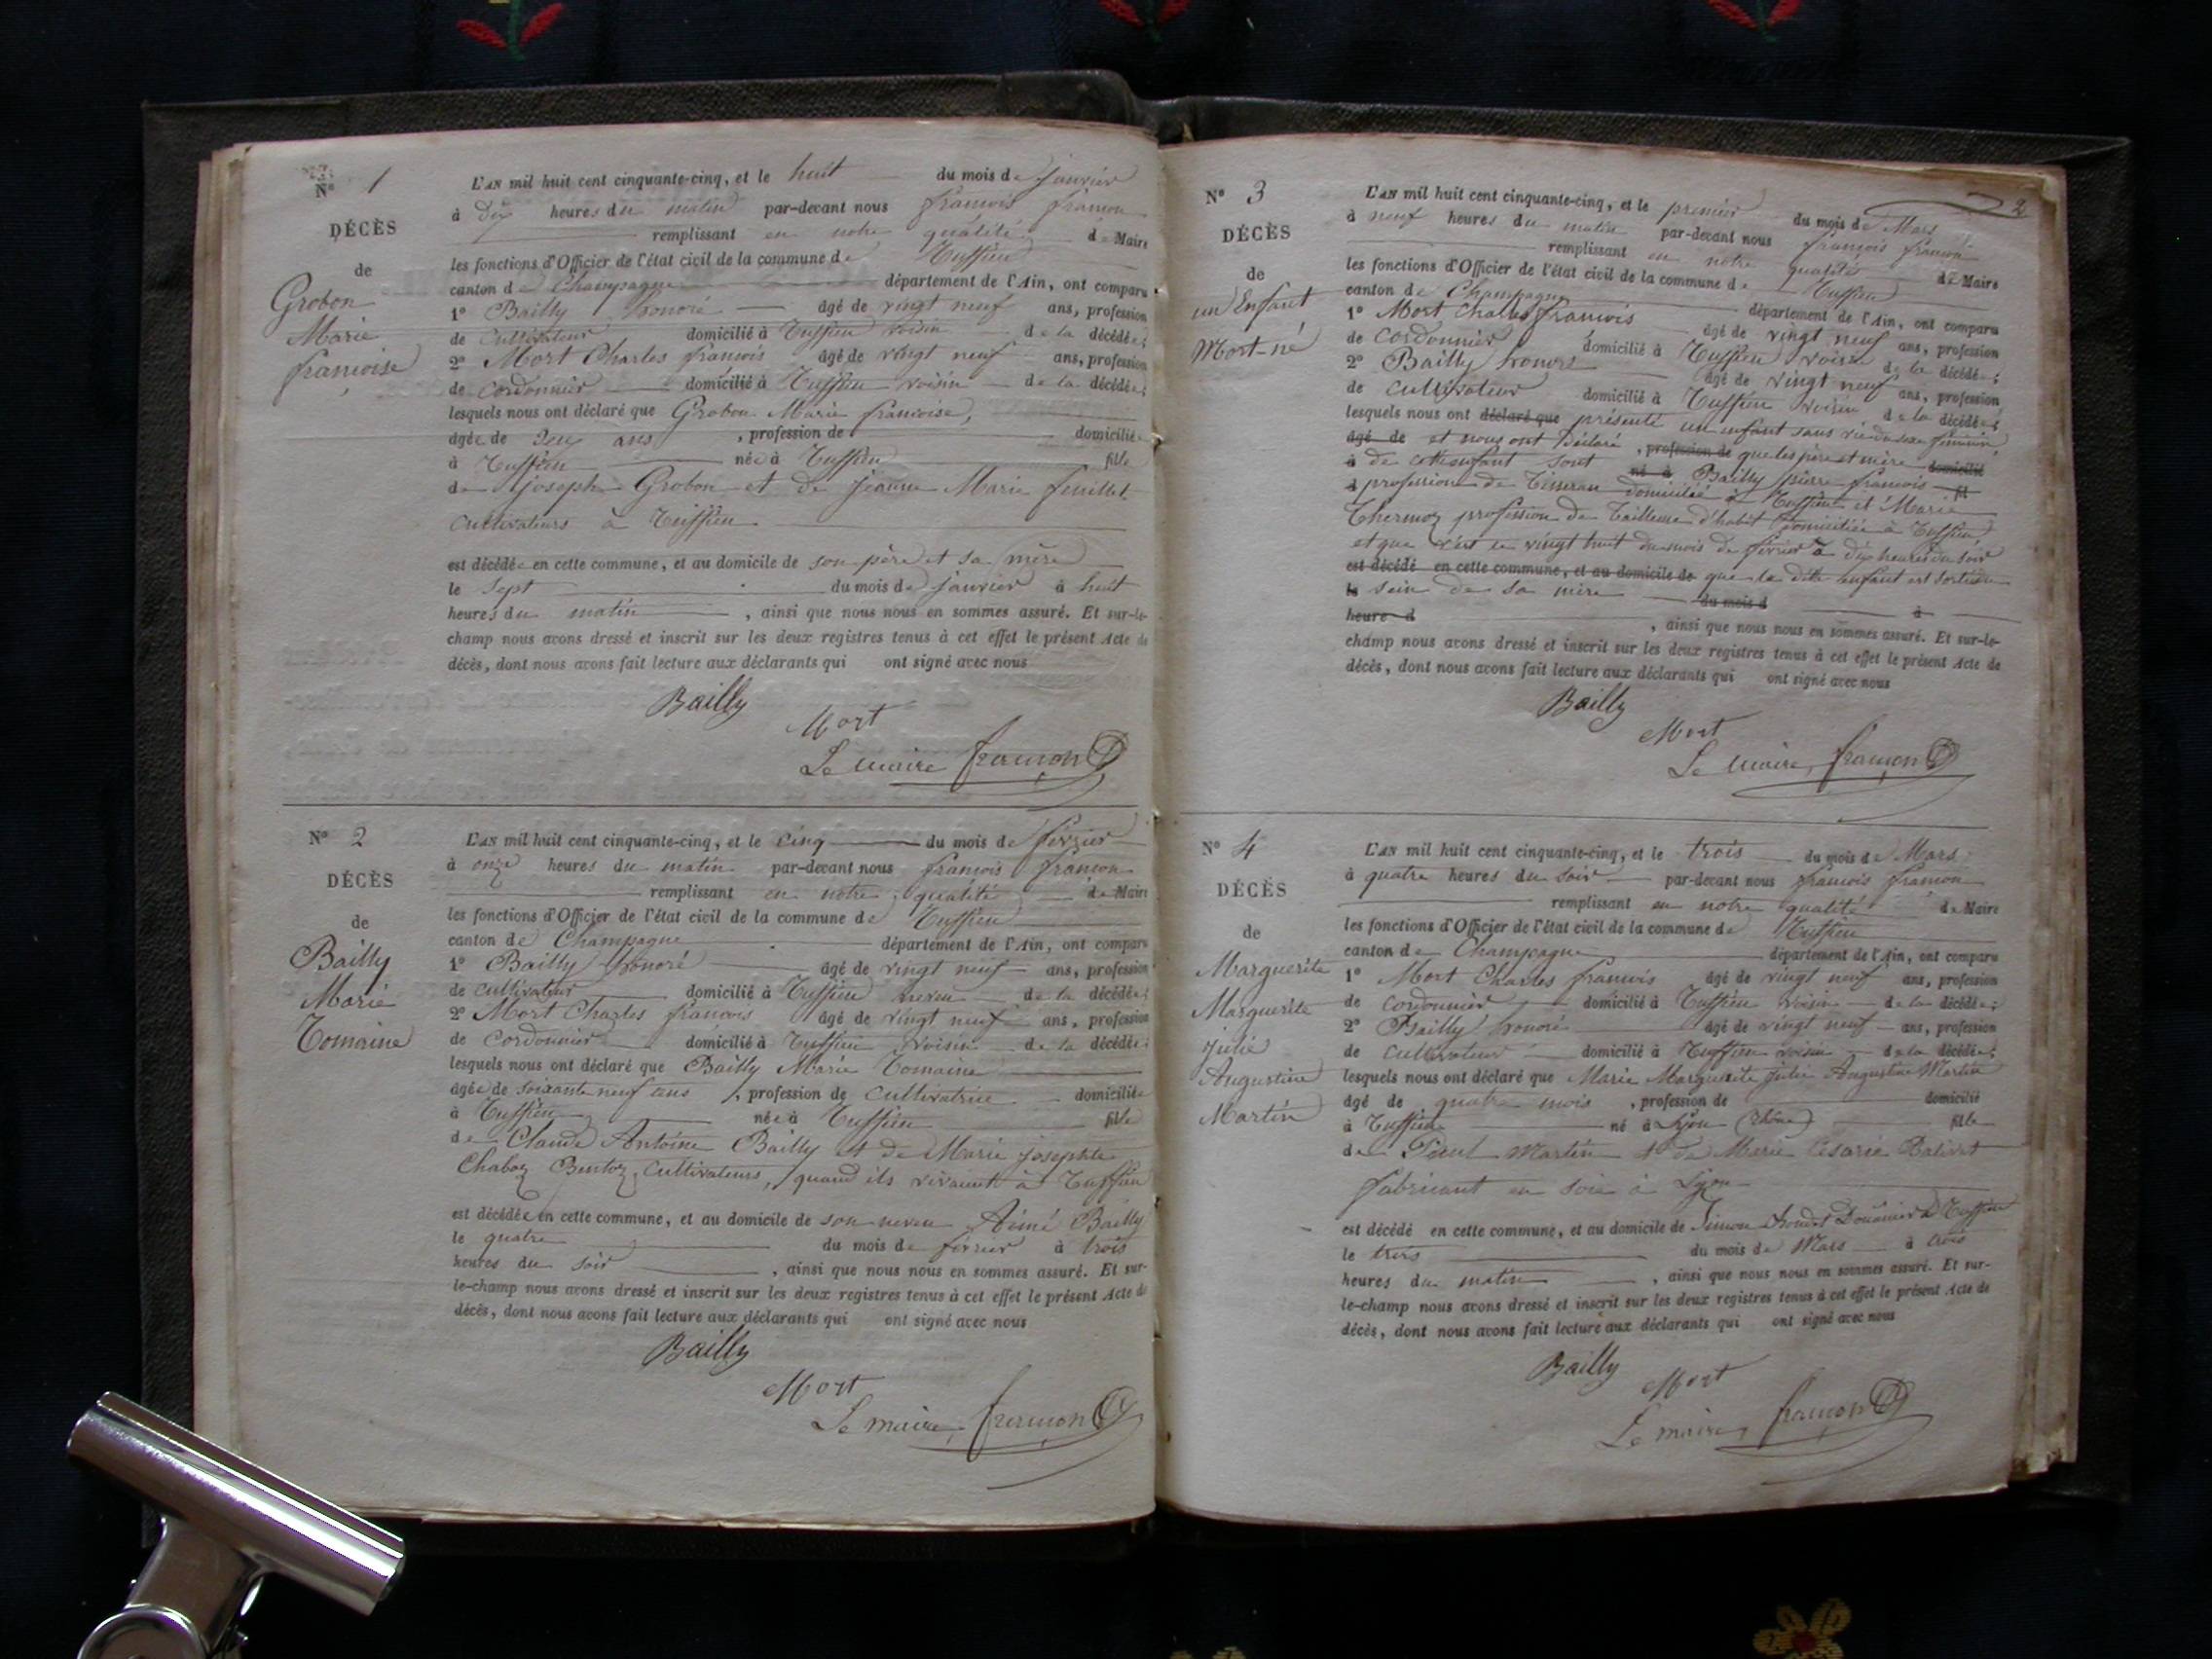 N° 1
DÉCÈS
de
Grobon
Marie
françoise
L'AN mil huit cent cinquante-cinq, et le huit du mois de janvier
à dix heures du matin par-devant nous françois françon
remplissant en notre qualité de Maire
les fonctions d'Officier de l'état civil de la commune de Ruffieu
canton de Champagne département de l'Ain, ont comparu
1° Bailly honoré âgé de vingt neuf ans, profession
de Cultivateur domicilié à Ruffieu voisin de la décédée;
2° Mort Charles françois âgé de vingt neuf ans, profession
de cordonnier domicilié à Ruffieu voisin de la décédée;
lesquels nous ont déclaré que Grobon Marie françoise,
âgée de deux ans, profession de domiciliée
à Ruffieu née à Ruffieu fille
de joseph Grobon et de jeanne Marie feuillet
cultivateurs à Ruffieu.
est décédée en cette commune, et au domicile de son père et sa mère
le sept du mois de janvier à huit
heures du matin, ainsi que nous nous en sommes assuré. Et sur-le-
champ nous avons dressé et inscrit sur les deux registres tenus à cet effet le présent Acte de
décès, dont nous avons fait lecture aux déclarants qui ont signé avec nous
Bailly
Mort
Le maire françon
N° 2
DÉCÈS
de
Bailly
Marie
Tomaine
L'AN mil huit cent cinquante-cinq, et le cinq du mois de février
à onze heures du matin par-devant nous françois françon
remplissant en notre qualité de Maire
les fonctions d'Officier de l'état civil de la commune de Ruffieu
canton de Champagne département de l'Ain, ont comparu
1° Bailly honoré âgé de vingt neuf ans, profession
de cultivateur domicilié à Ruffieu neveu de la décédée;
2° Mort Charles françois âgé de vingt neuf ans, profession
de Cordonnier domicilié à Ruffieu voisin de la décédée;
lesquels nous ont déclaré que Bailly Marie Tomaine
âgée de soixante neuf ans, profession de cultivatrice domiciliée
à Ruffieu née à Ruffieu fille
de Claude Antoine Bailly et de Marie josephte
Chaboz Bentoz, Cultivateurs, quand ils vivaient à Ruffieu
est décédée en cette commune, et au domicile de son neveu Aimé Bailly
le quatre du mois de février à trois
heures du soir, ainsi que nous nous en sommes assuré. Et sur-
le-champ nous avons dressé et inscrit sur les deux registres tenus à cet effet le présent Acte de
décès, dont nous avons fait lecture aux déclarants qui ont signé avec nous
Bailly
Mort
Le maire, françon
2
N° 3
DÉCÈS
de
un Enfant
Mort-né
L'AN mil huit cent cinquante-cinq, et le premier du mois de Mars
à neuf heures du matin par-devant nous françois françon
remplissant en notre qualité de Maire
les fonctions d'Officier de l'état civil de la commune de Ruffieu
canton de Champagne département de l'Ain, ont comparu
1° Mort Charles françois âgé de vingt neuf ans, profession
de Cordonnier domicilié à Ruffieu voisin de la décédée;
2° Bailly honoré âgé de vingt neuf ans, profession
de cultivateur domicilié à Ruffieu voisin de la décédée;
lesquels nous ont déclaré que présenté un enfant sans vie du sexe féminin
âgé de et nous ont déclaré, profession de que les père et mère domicilié
à de cette enfant sont né à Bailly pierre françois fil
d profession de Tisseran domicilié à Ruffieu et Marie
Thermoz profession de Tailleuse d'habit domiciliée à Ruffieu
et que c'est le vingt huit du mois de février à dix heures du soir
est décédé en cette commune, et au domicile de que la dite enfant est sortie du
le sein de sa mère du mois d à
heure d, ainsi que nous nous en sommes assuré. Et sur-le-
champ nous avons dressé et inscrit sur les deux registres tenus à cet effet le présent Acte de
décès, dont nous avons fait lecture aux déclarants qui ont signé avec nous
Bailly
Mort
Le maire, françon
N° 4
DÉCÈS
de
Marguerite
Marguerite
julie
Augustine
Martin
L'AN mil huit cent cinquante-cinq, et le trois du mois de Mars
à quatre heures du soir par-devant nous françois françon
remplissant en notre qualité de Maire
les fonctions d'Officier de l'état civil de la commune de Ruffieu
canton de Champagne département de l'Ain, ont comparu
1° Mort Charles françois âgé de vingt neuf ans, profession
de cordonnier domicilié à Ruffieu voisin de la décédée;
2° Bailly honoré âgé de vingt neuf ans, profession
de cultivateur domicilié à Ruffieu voisin de la décédée;
lesquels nous ont déclaré que Marie Marguerite julie Augustine Martin
âgé de quatre mois, profession de domicilié
à Ruffieu né à Lyon (Rhône) fille
de Paul Martin et de Marie Césarie
fabricant en soie à Lyon
est décédé en cette commune, et au domicile de Simon Douanier à Ruffieu
le trois du mois de Mars à trois
heures du matin, ainsi que nous nous en sommes assuré. Et sur-
le-champ nous avons dressé et inscrit sur les deux registres tenus à cet effet le présent Acte de
décès, dont nous avons fait lecture aux déclarants qui ont signé avec nous
Bailly
Mort
Le maire, françon